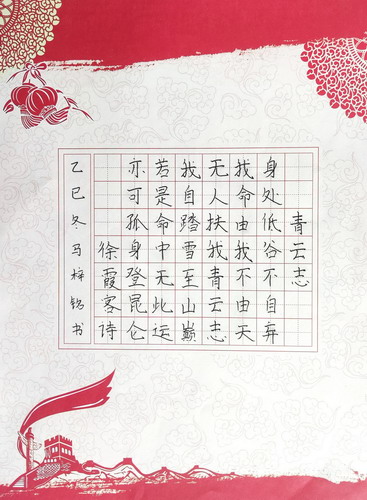 青云志
身处低谷不自弃
我命由我不由天
无人扶我青云志
我自踏雪至山巅
若是命中无此运
亦可孤身登昆仑
徐霞客诗
乙巳冬马梓铭书